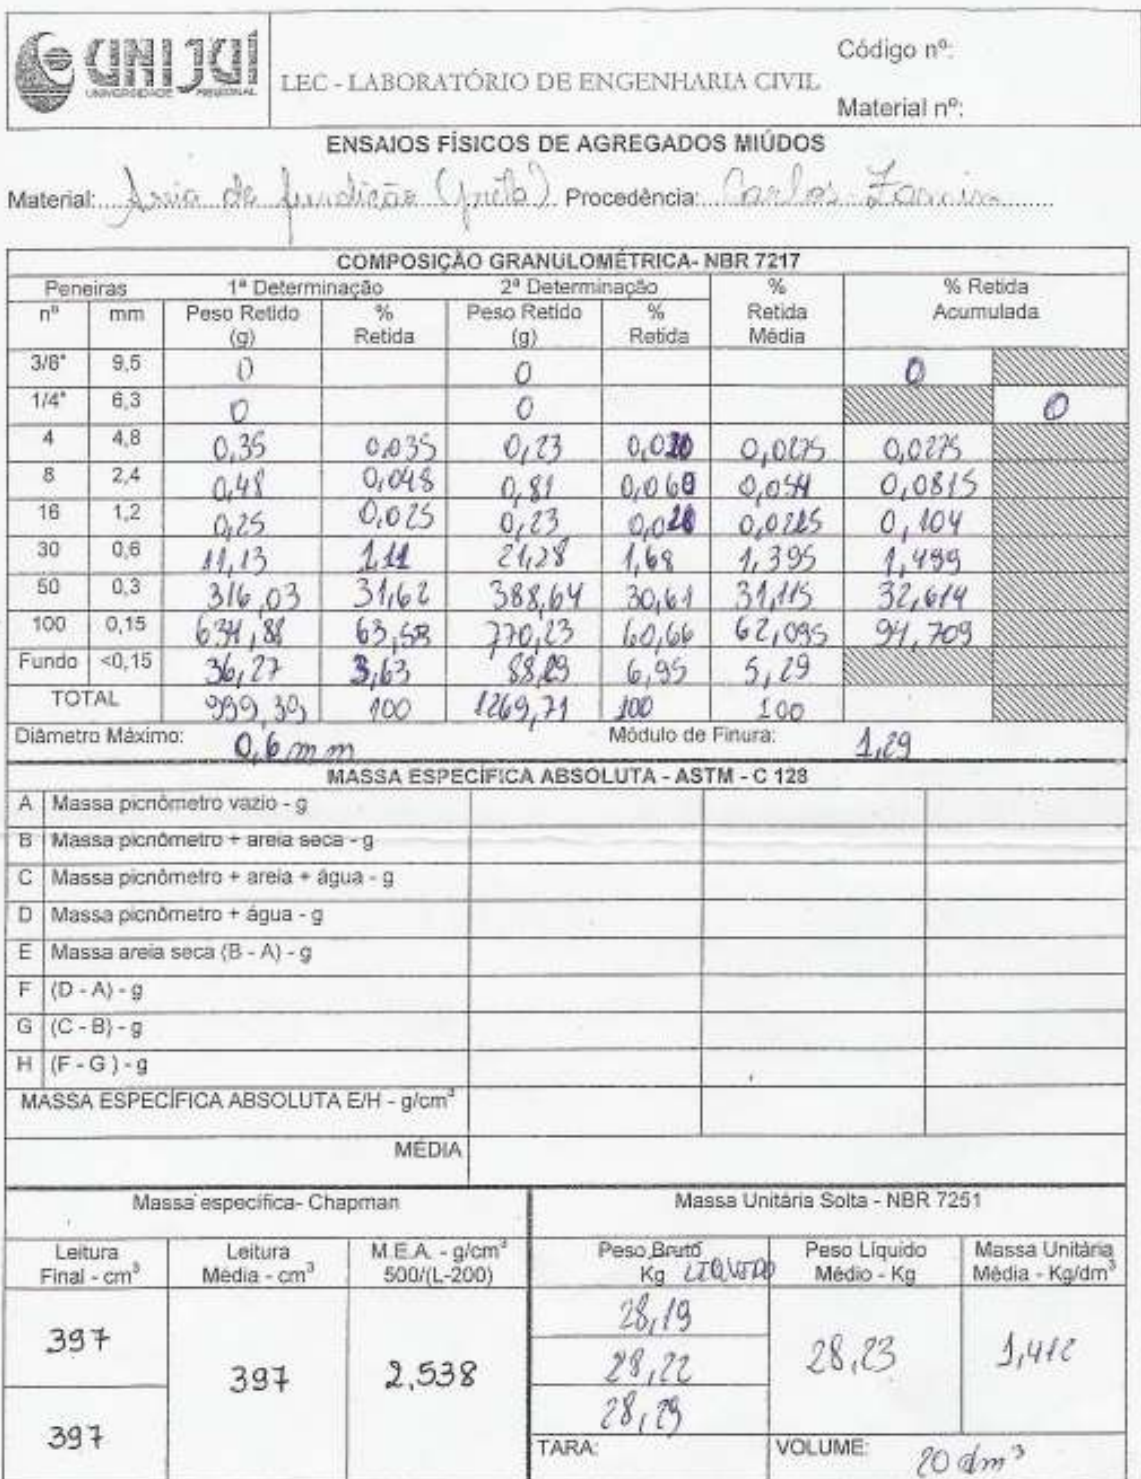 UNIJUÍ
UNIVERSIDADE REGIONAL
LEC - LABORATÓRIO DE ENGENHARIA CIVIL
Código nº:
Material nº:
ENSAIOS FÍSICOS DE AGREGADOS MIÚDOS
Material: Areia de fundição (preta) Procedência: Carlos
COMPOSIÇÃO GRANULOMÉTRICA- NBR 7217
Peneiras 1ª Determinação 2ª Determinação % Retida Média % Retida Acumulada
nº mm Peso Retido (g) % Retida Peso Retido (g) % Retida
3/8" 9,5 0 0 0
1/4" 6,3 0 0 0
4 4,8 0,35 0,035 0,23 0,020 0,0275 0,0275
8 2,4 0,48 0,048 0,81 0,060 0,054 0,0815
16 1,2 0,25 0,025 0,23 0,020 0,0225 0,104
30 0,6 11,13 1,11 21,28 1,68 1,395 1,499
50 0,3 316,03 31,62 388,64 30,61 31,115 32,614
100 0,15 634,88 63,53 770,23 60,66 62,095 94,709
Fundo <0,15 36,27 3,63 88,29 6,95 5,29
TOTAL 999,39 100 1269,71 100 100
Diâmetro Máximo: 0,6 mm Módulo de Finura: 1,29
MASSA ESPECÍFICA ABSOLUTA - ASTM - C 128
A Massa picnômetro vazio - g
B Massa picnômetro + areia seca - g
C Massa picnômetro + areia + água - g
D Massa picnômetro + água - g
E Massa areia seca (B - A) - g
F (D - A) - g
G (C - B) - g
H (F - G ) - g
MASSA ESPECÍFICA ABSOLUTA E/H - g/cm³
MÉDIA
Massa específica- Chapman Massa Unitária Solta - NBR 7251
Leitura Final - cm³ Leitura Média - cm³ M.E.A. - g/cm³ 500/(L-200) Peso Bruto Kg LIQUIDO Peso Líquido Médio - Kg Massa Unitária Média - Kg/dm³
397 397 2,538 28,19 28,23 1,412
28,22
397 28,29
TARA: VOLUME: 20 dm³